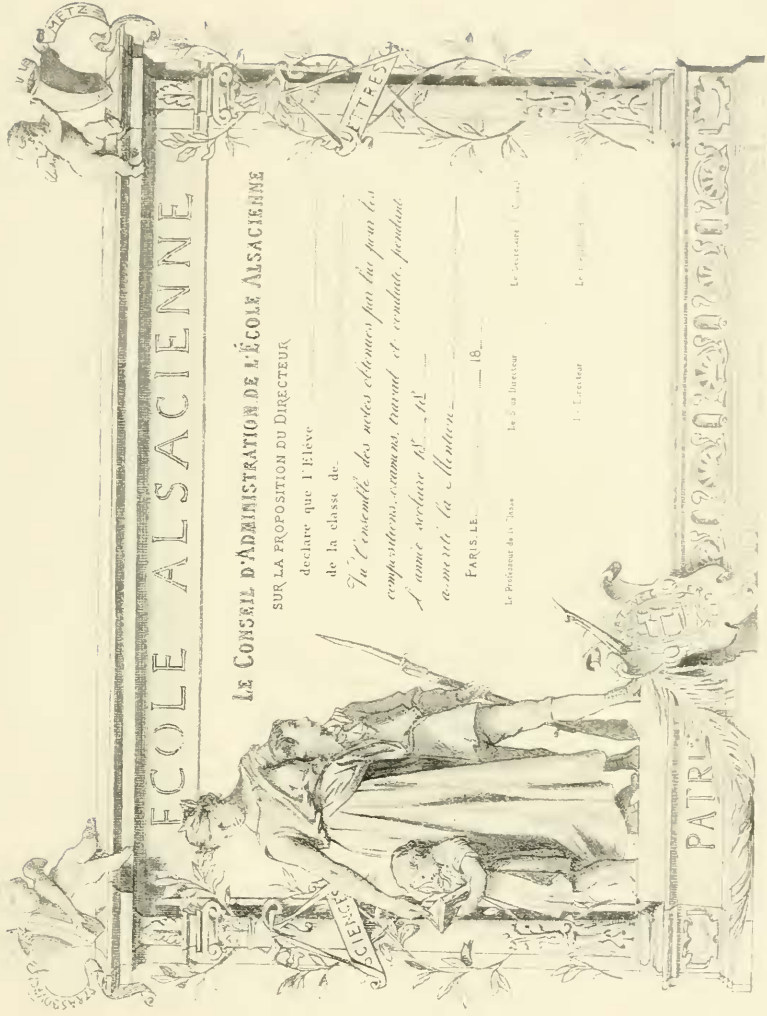 STRASBOURG
METZ
ECOLE ALSACIENNE
SCIENCES
LETTRES
LE CONSEIL D'ADMINISTRATION DE L'ÉCOLE ALSACIENNE
SUR LA PROPOSITION DU DIRECTEUR
declare que l'Elève
de la classe de
Vu l'ensemble des notes obtenues par lui pour les
compositions, examens, travail et conduite, pendant
l'année scolaire 18 18
a mérité la Mention
PARIS, LE 18
Le Professeur de la Classe Le Sous Directeur Le Secrétaire du Conseil
Le Directeur Le
PATRIE